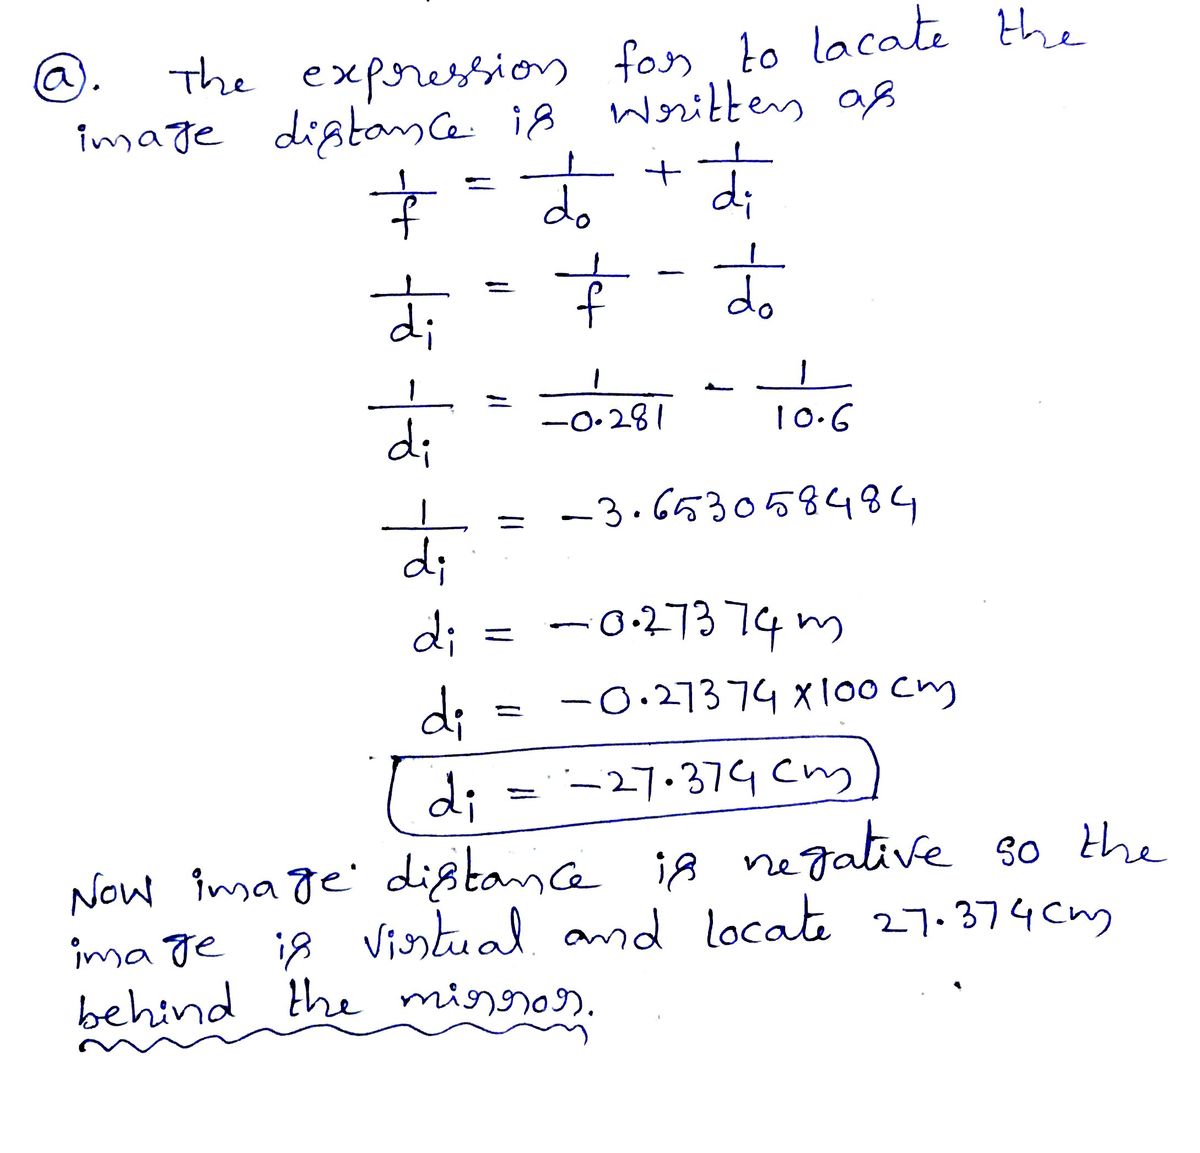 (a). The expression for to lacate the
image distance is written as
1/f = 1/do + 1/di
1/di = 1/f - 1/do
1/di = 1/-0.281 - 1/10.6
1/di = -3.653058484
di = -0.27374 m
di = -0.27374 x 100 cm
di = -27.374 cm
Now image distance is negative so the
image is virtual and locate 27.374 cm
behind the mirror.